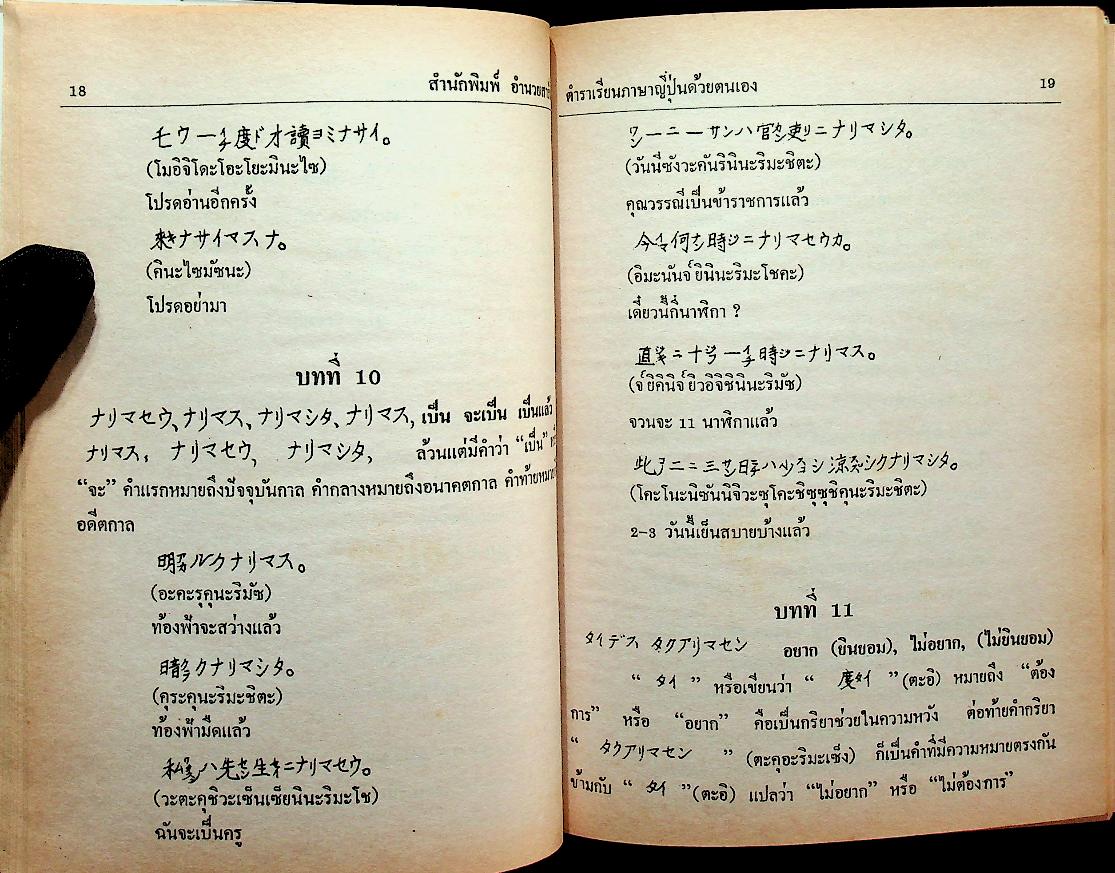 18
สำนักพิมพ์ อำนวยสา
モウ一度ド才讀ヨミナサイ。
(โมอิจิโดะโอะโยะมินะไซ)
โปรดอ่านอีกครั้ง
來キナサイマスナ。
(คินะไซมัซนะ)
โปรดอย่ามา
บทที่ 10
ナリマセウ、ナリマス、ナリマシタ、ナリマス, เป็น จะเป็น เป็นแล้ว
ナリマス, ナリマセウ、 ナリマシタ、 ล้วนแต่มีคำว่า “เป็น”
“จะ” คำแรกหมายถึงปัจจุบันกาล คำกลางหมายถึงอนาคตกาล คำท้ายหมาย
อดีตกาล
明ルクナリマス。
(อะคะรุคุนะริมัซ)
ท้องฟ้าจะสว่างแล้ว
暗クナリマシタ。
(คุระคุนะริมะชิตะ)
ท้องฟ้ามืดแล้ว
私ハ先生ニナリマセウ。
(วะตะคุชิวะเซ็นเซียนินะริมะโช)
ฉันจะเป็นครู
ตำราเรียนภาษาญี่ปุ่นด้วยตนเอง
19
ワンーニーサンハ官吏ニナリマシタ。
(วันนี่ซังวะคันรินินะริมะชิตะ)
คุณวรรณีเป็นข้าราชการแล้ว
今何時ジニナリマセウカ。
(อิมะนันจ์ยินินะริมะโชคะ)
เดี๋ยวนี้กี่นาฬิกา ?
直ニ十一時ジニナリマス。
(จ์ยิคินิจ์ยิวอิจิชินินะริมัซ)
จวนจะ 11 นาฬิกาแล้ว
此ノ二ニ三日ハ少シ涼シクナリマシタ。
(โคะโนะนิซันนิจิวะซุโคะชิซุซุชิคุนะริมะชิตะ)
2-3 วันนี้เย็นสบายบ้างแล้ว
บทที่ 11
タイデス タクアリマセン อยาก (ยินยอม), ไม่อยาก, (ไม่ยินยอม)
“ タイ ” หรือเขียนว่า “ 度タイ ” (ตะอิ) หมายถึง “ต้อง
การ” หรือ “อยาก” คือเป็นกริยาช่วยในความหวัง ต่อท้ายคำกริยา
“ タクアリマセン ” (ตะคุอะริมะเซ็ง) ก็เป็นคำที่มีความหมายตรงกัน
ข้ามกับ “ タイ ” (ตะอิ) แปลว่า “ไม่อยาก” หรือ “ไม่ต้องการ”